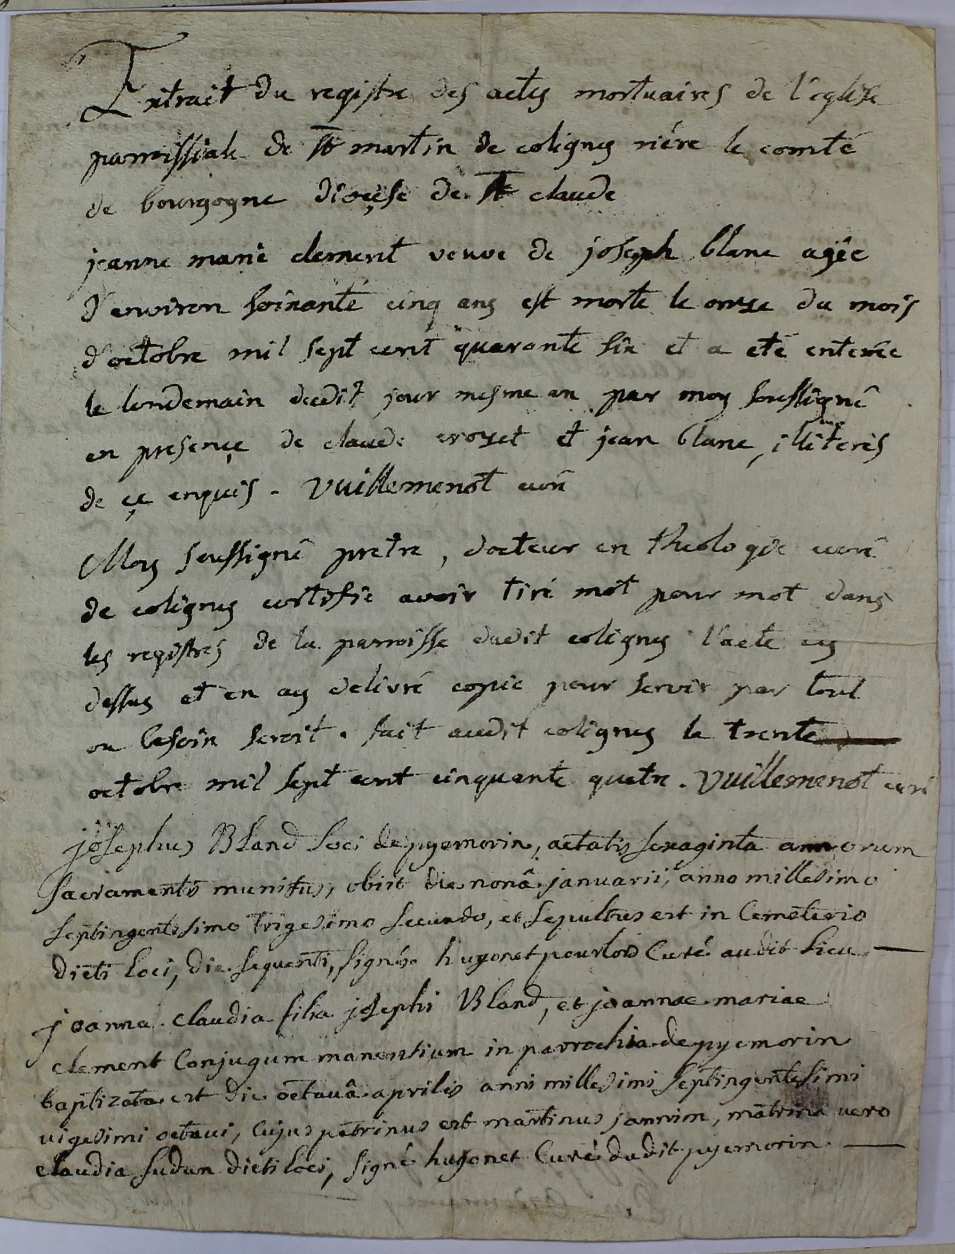 Extrait du registre des actes mortuaires de l'eglise
parroissiale de st martin de coligny riére le comté
de bourgogne dioçese de st claude
jeanne marie clement veuve de joseph blanc agée
d'environ soixante cinq ans est morte le onze du mois
d'octobre mil sept cent quarante six et a eté enterée
le lendemain dudit jour mesme an par moy soussigné
en presençe de claude crozet et jean blanc, illiterés
de çe enquis. Vuillemenot curé
Moy soussigné pretre, docteur en theologie curé
de coligny certifie avoir tiré mot pour mot dans
les registres de la parroisse dudit coligny l'acte cy
dessus et en ay delivré copie pour servir par tout
ou besoin seroit. fait audit coligny le trente
octobre mil sept cent cinquante quatre. Vuillemenot curé
josephus Bland loci de pyemorin, aetatis sexaginta annorum
sacramentis munitus, obiit die nonâ januarii, anno millesimo
septingentesimo trigesimo secundo, et sepultus est in Cemeterio
dicti loci, die sequenti, signés hugonet pourlors Curé audit lieu
joanna claudia filia josephi Bland, et joannae mariae
clement Conjugum manentium in parrochia de pyemorin
baptizata est die octavâ aprilis anni millesimi septingentesimi
vigesimi octavi, cujus patrinus est martinus jannin, matrina vero
claudia sudan dicti loci, signé hugonet Curé dudit pyemorin